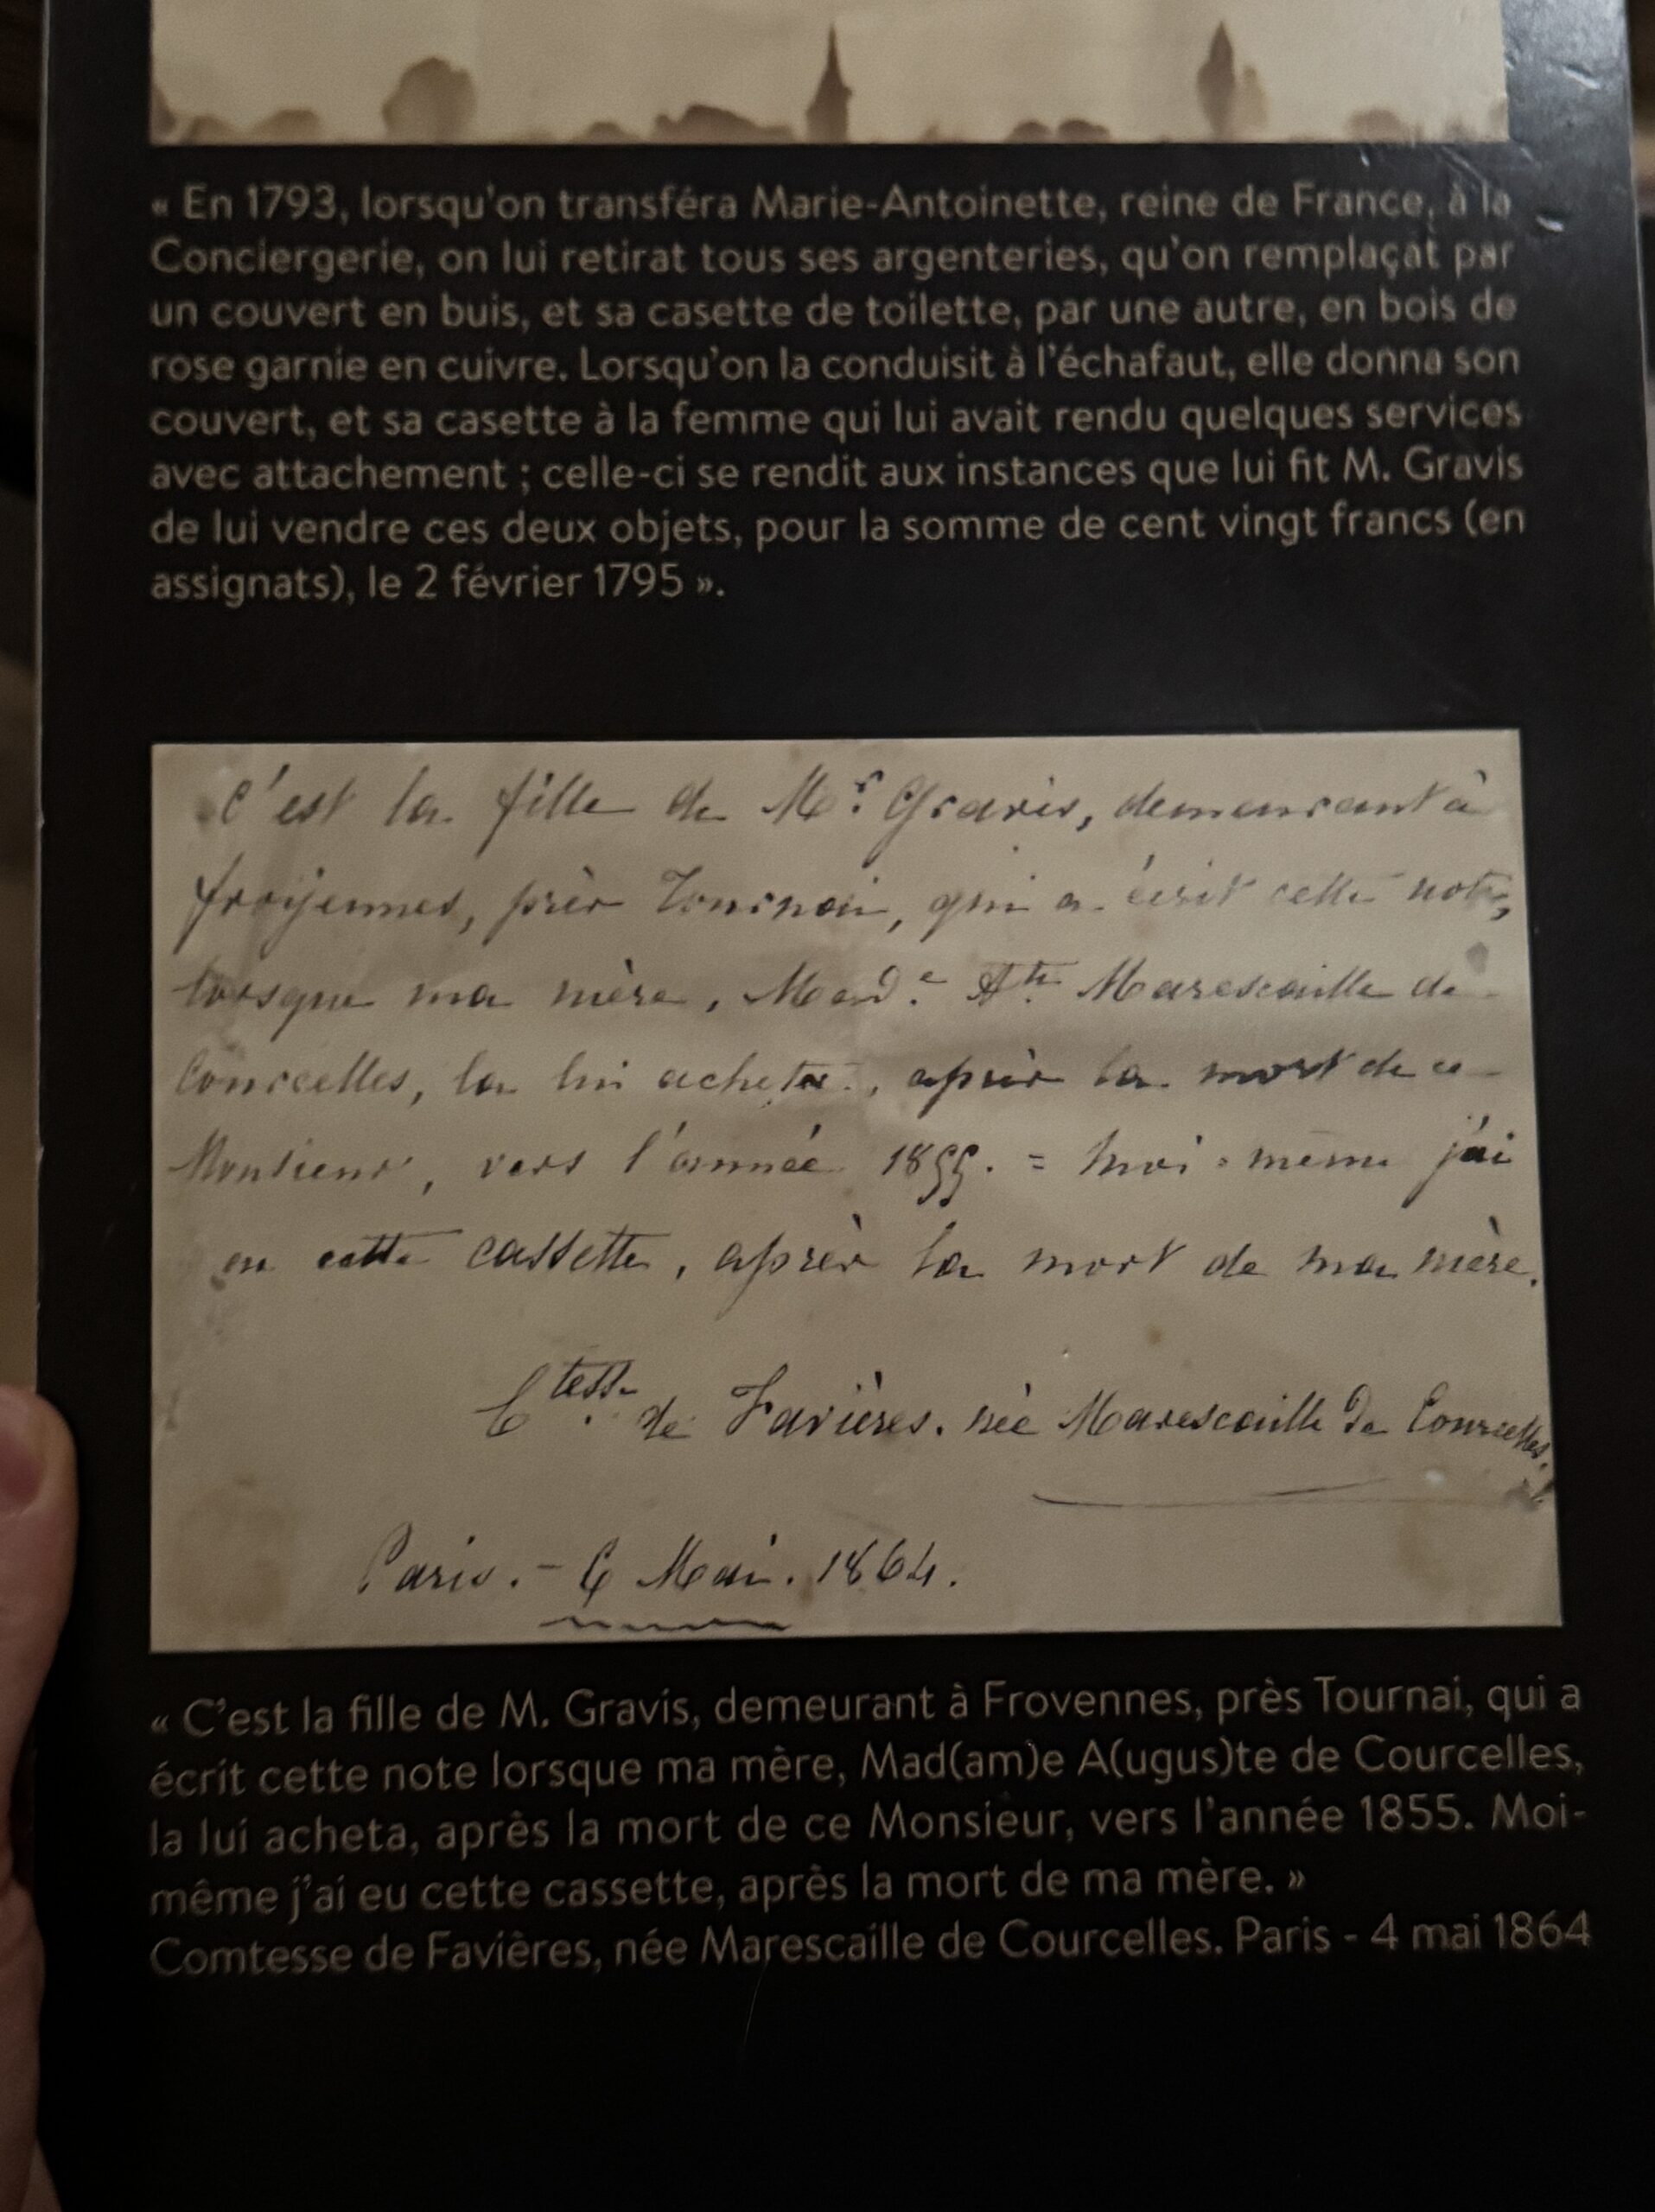 « En 1793, lorsqu'on transféra Marie-Antoinette, reine de France, à la
Conciergerie, on lui retirat tous ses argenteries, qu'on remplaçat par
un couvert en buis, et sa casette de toilette, par une autre, en bois de
rose garnie en cuivre. Lorsqu'on la conduisit à l'échafaut, elle donna son
couvert, et sa casette à la femme qui lui avait rendu quelques services
avec attachement ; celle-ci se rendit aux instances que lui fit M. Gravis
de lui vendre ces deux objets, pour la somme de cent vingt francs (en
assignats), le 2 février 1795 ».
C'est la fille de Mr. Gravis, demeurant à
froyennes, près Tournai, qui a écrit cette note,
lorsque ma mère, Made. Ate. Marescaille de
Courcelles, la lui acheta, après la mort de ce
Monsieur, vers l'année 1855. = Moi-même j'ai
eu cette cassette, après la mort de ma mère.
Ctesse. de Favières. née Marescaille de Courcelles.
Paris. - 4 Mai. 1864.
« C'est la fille de M. Gravis, demeurant à Frovennes, près Tournai, qui a
écrit cette note lorsque ma mère, Mad(am)e A(ugus)te de Courcelles,
la lui acheta, après la mort de ce Monsieur, vers l'année 1855. Moi-
même j'ai eu cette cassette, après la mort de ma mère. »
Comtesse de Favières, née Marescaille de Courcelles. Paris - 4 mai 1864